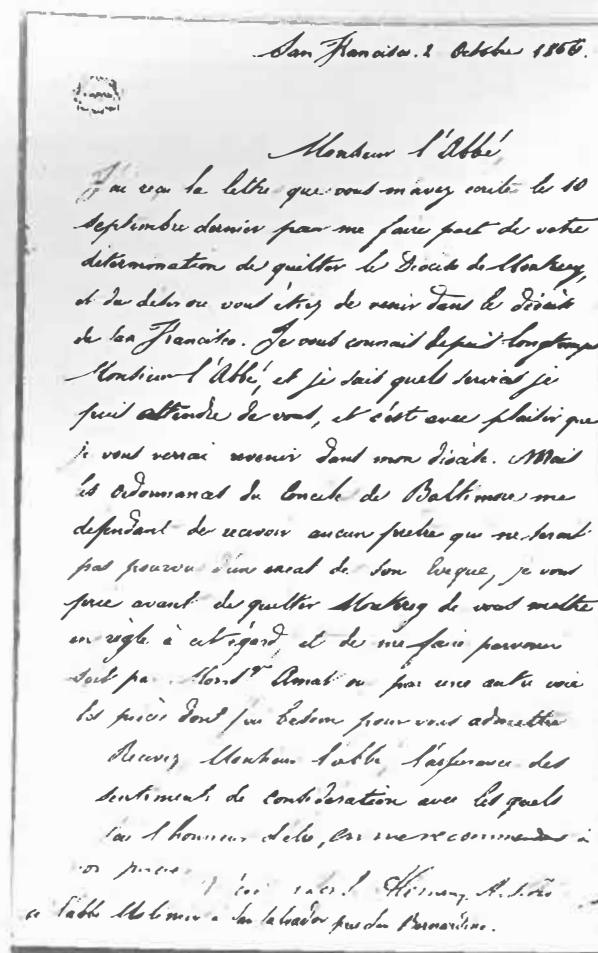 San Francisco. 2 Octobre 186
Monsieur l'Abbé,
J'ai reçu la lettre que vous m'avez ecrite le 10
septembre dernier pour me faire part de votre
determination de quitter le Diocèse de Monterey,
et du desir ou vous étiez de venir dans le diocèse
de San Francisco. Je vous connais depuis longtemps
Monsieur l'Abbé, et je sais quels services je
puis attendre de vous, et c'est avec plaisir que
je vous verrai revenir dans mon diocèse. Mais
les ordonnances du Concile de Baltimore me
defendant de recevoir aucun pretre qui ne serait
pas pourvu d'un exeat de son Eveque, je vous
prie avant de quitter Monterey de vous mettre
en règle à cet égard, et de me faire parvenir
soit par Monsgr Amat ou par une autre voie
les pièces dont j'ai besoin pour vous admettre
Recevez Monsieur l'abbé, l'assurance des
sentiments de consideration avec les quels
j'ai l'honneur d'etre, en me recommandant à
vos prieres
l'abbé Molinier a San Salvador pres San Bernardino.